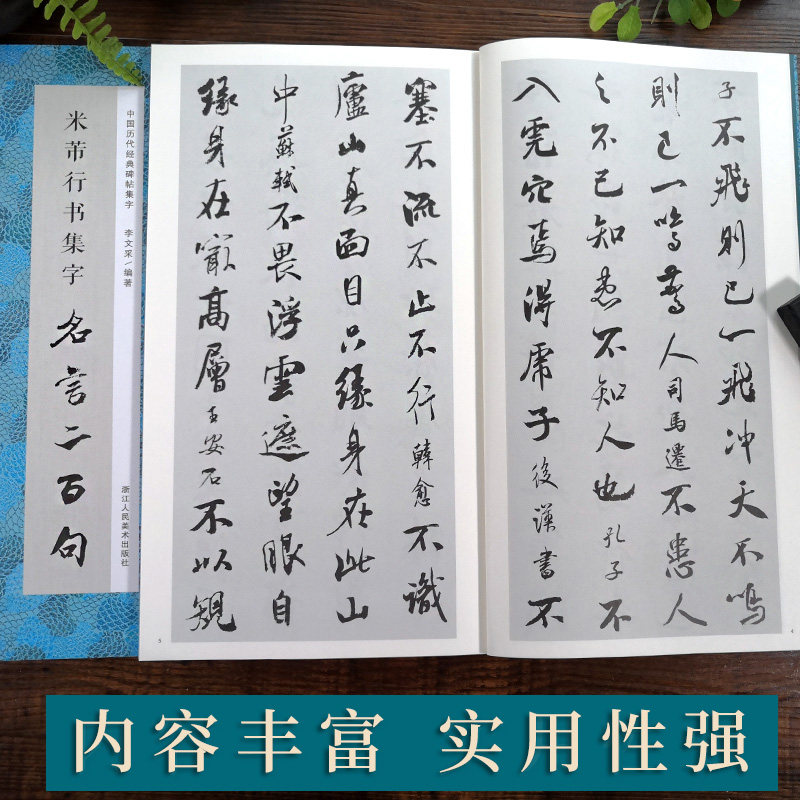 中国历代经典碑帖集字 李文采/编著
米芾行书集字 名言二百句
浙江人民美术出版社
子不飛則已一飛冲天不鳴
則已一鳴驚人司馬遷不患人
之不己知患不知人也孔子不
入虎穴焉得虎子後漢書不
4
塞不流不止不行韓愈不識
廬山真面目只緣身在此山
中蘇軾不畏浮雲遮望眼自
緣身在最高層王安石不以規
5
内容丰富 实用性强